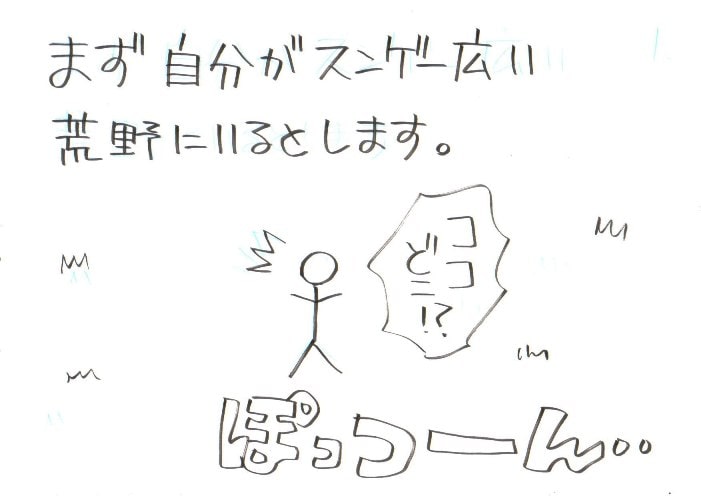 まず自分がスンゲー広い
荒野にいるとします。
ココ
どこ!?
ぽっつーん..